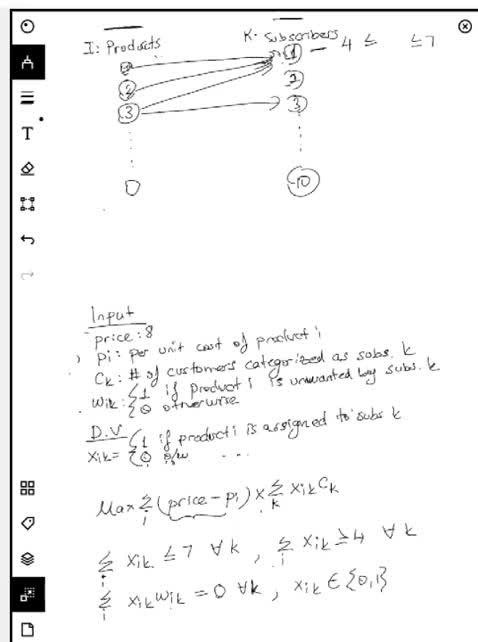 I: Products
K: Subscribers
1
1
4 ≤ ≤ 7
2
2
3
3
10
Input
price: 8
Pi: per unit cost of product i
Ck: # of customers categorized as subs. k
Wik: { 1 if product i is unwanted by subs. k
{ 0 otherwise
D.V
Xik = { 1 if product i is assigned to subs k
{ 0 o/w
Max Σi (price - pi) x Σk Xik Ck
Σi Xik ≤ 7 ∀k, Σi Xik ≥ 4 ∀k
Σi Xik Wik = 0 ∀k, Xik ∈ {0,1}
T